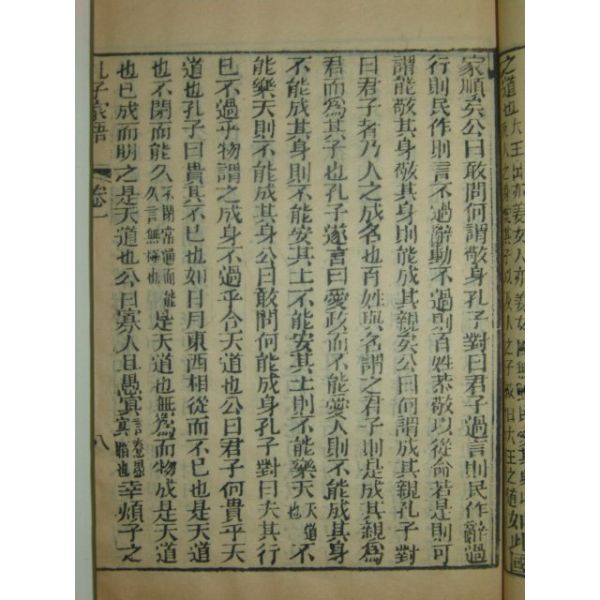 之道也
家順矣公曰敢問何謂敬身孔子對曰君子過言則民作辭過
行則民作則言不過辭動不過則百姓恭敬以從命若是則可
謂能敬其身敬其身則能成其親矣公曰何謂成其親孔子對
曰君子者乃人之成名也百姓與名謂之君子則是成其親爲
君而爲其子也孔子遂言曰愛政而不能愛人則不能成其身
不能成其身則不能安其土不能安其土則不能樂天天道也不
能樂天則不能成其身公曰敢問何能成身孔子對曰夫其行
已不過乎物謂之成身不過乎合天道也公曰君子何貴乎天
道也孔子曰貴其不已也如日月東西相從而不已也是天道
也不閉而能久不閉常通而能久言無極也是天道也無爲而物成是天道
也已成而明之是天道也公曰寡人且愚冥言惷愚冥暗也幸煩子之
孔子家語 卷一 八